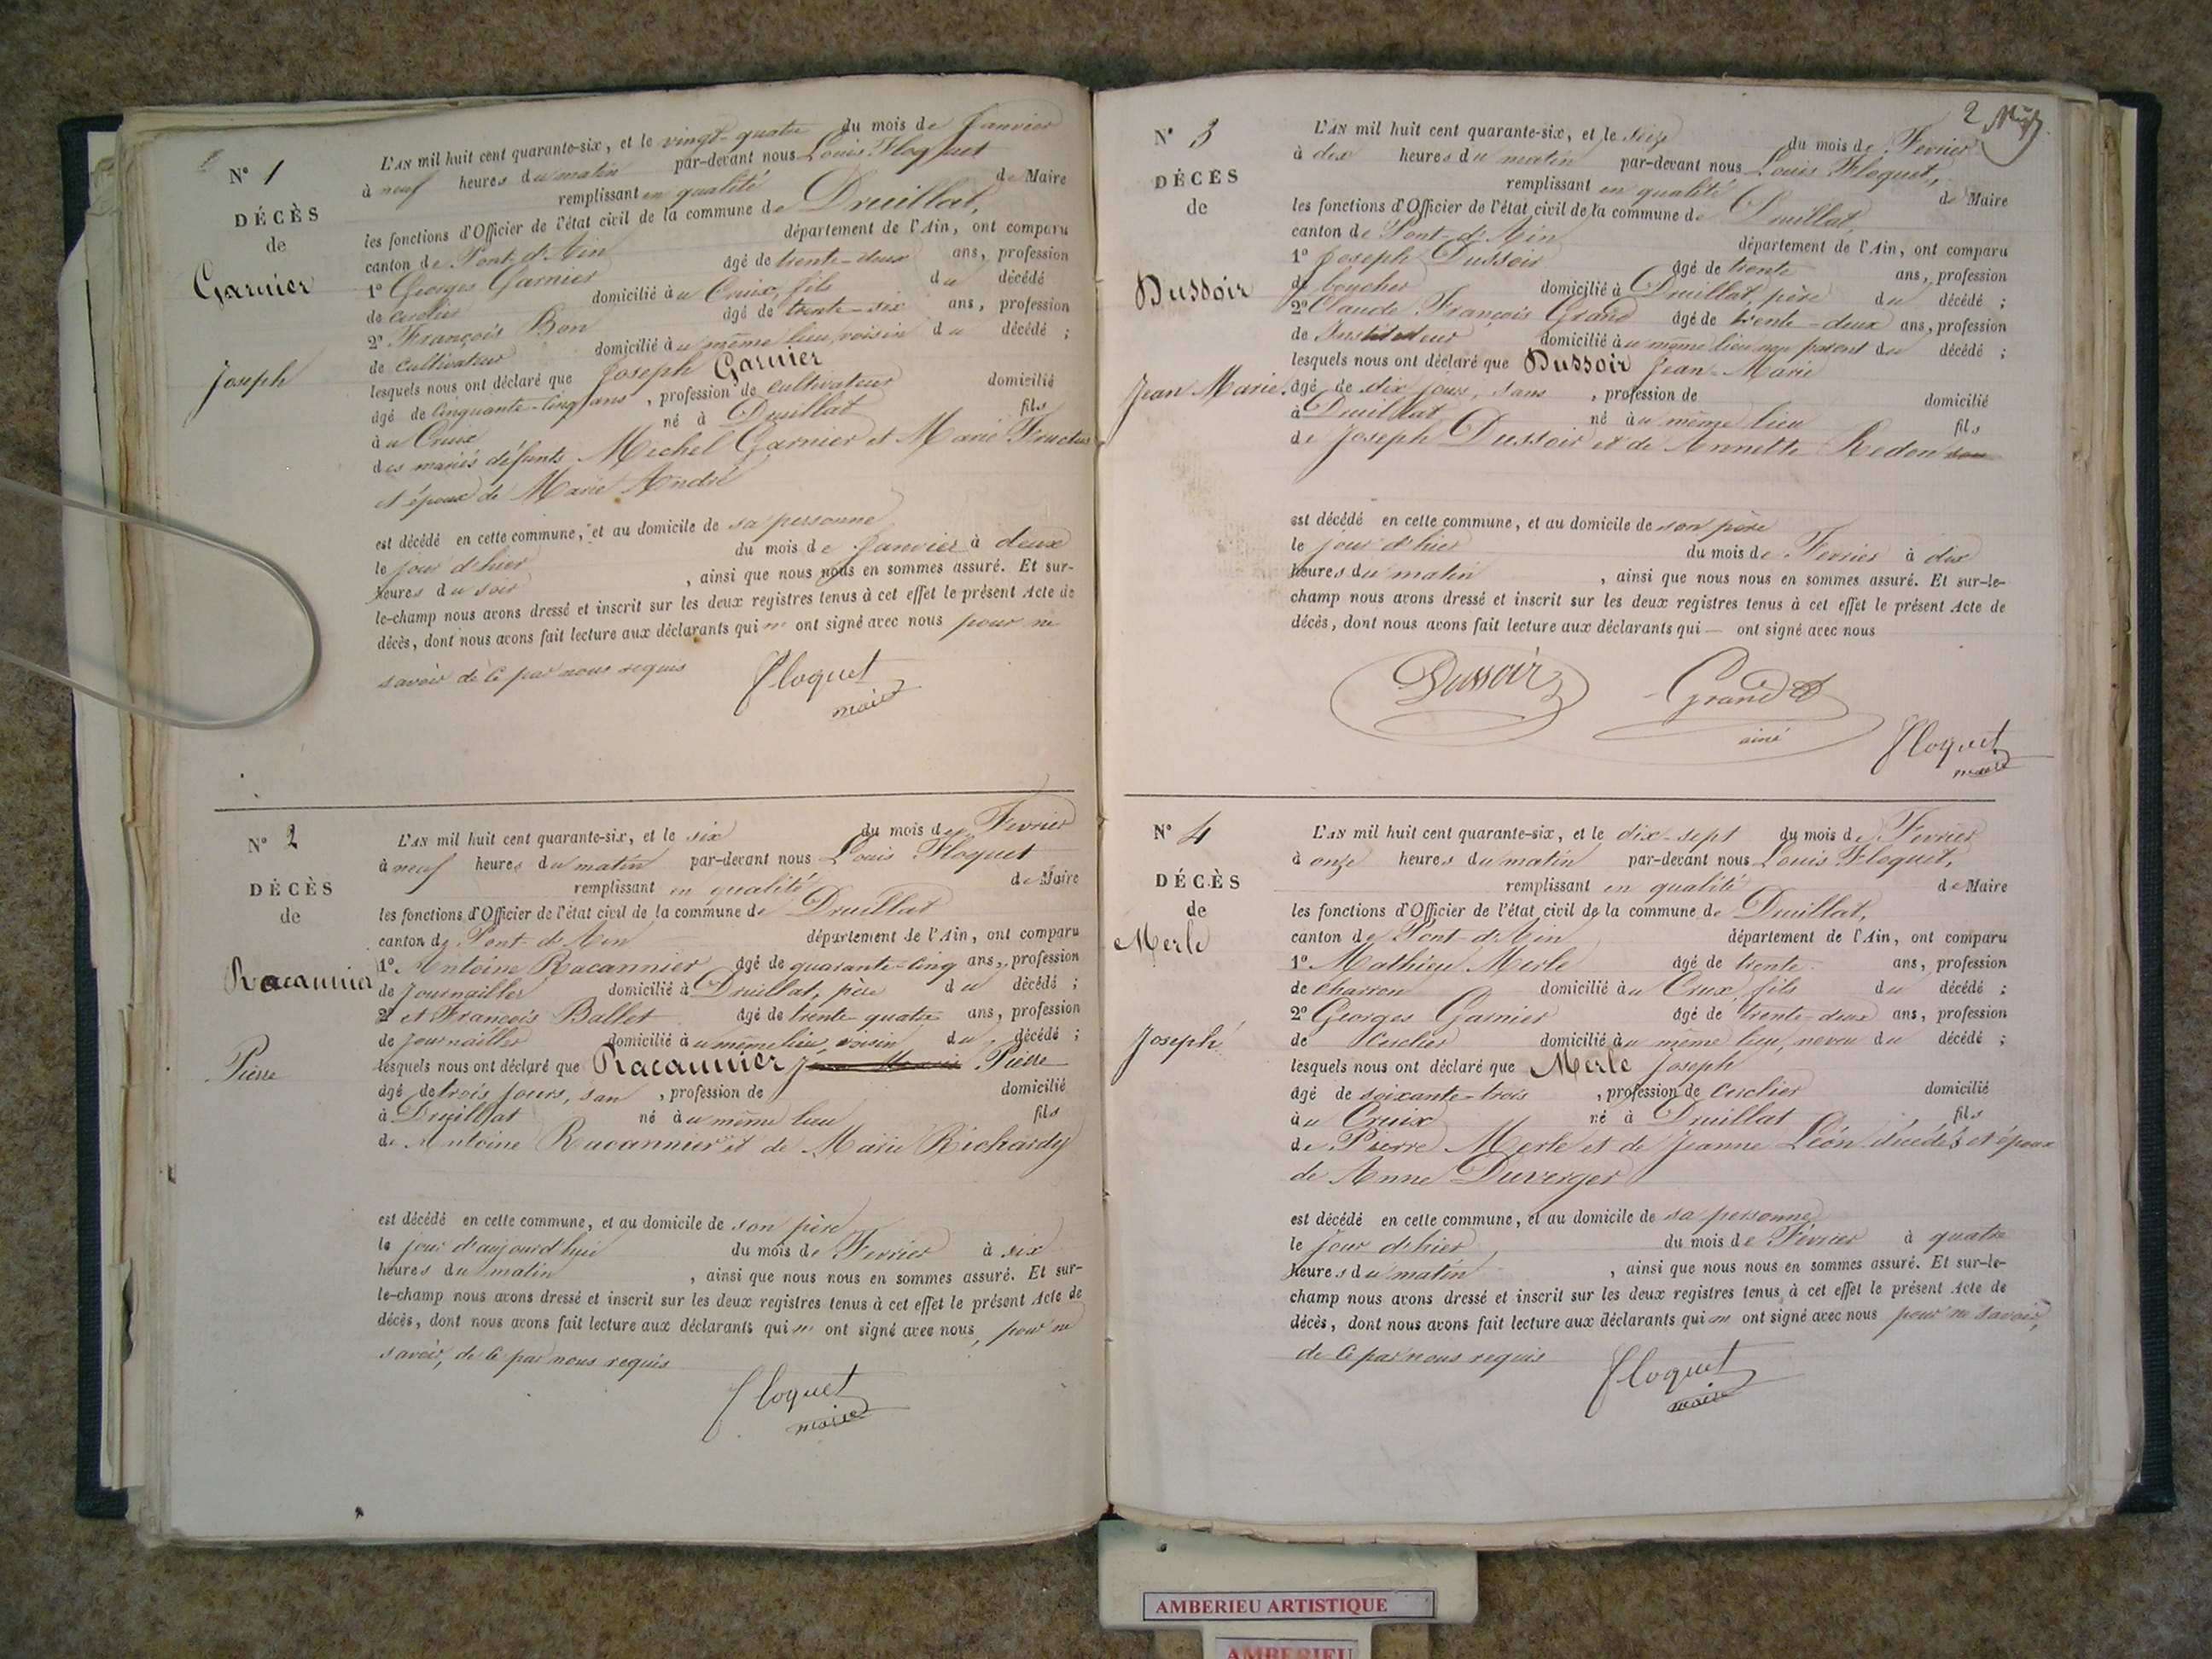 N° 1
DÉCÈS
de
Garnier
Joseph
L'AN mil huit cent quarante-six, et le vingt-quatre du mois de Janvier
à neuf heures du matin par-devant nous Louis Floquet
remplissant en qualité de Maire
les fonctions d'Officier de l'état civil de la commune de Druillat,
canton de Pont-d'Ain département de l'Ain, ont comparu
1° Georges Garnier âgé de trente-deux ans, profession
de cerclier domicilié au Cruix, fils du décédé
2° François Bon âgé de trente-six ans, profession
de cultivateur domicilié au même lieu, voisin du décédé ;
lesquels nous ont déclaré que Joseph Garnier
âgé de cinquante-cinq ans, profession de cultivateur domicilié
au Cruix né à Druillat fils
des mariés défunts Michel Garnier et Marie
et époux de Marie André
est décédé en cette commune, et au domicile de sa personne
le jour d'hier du mois de Janvier à deux
heures du soir, ainsi que nous nous en sommes assuré. Et sur-
le-champ nous avons dressé et inscrit sur les deux registres tenus à cet effet le présent Acte de
décès, dont nous avons fait lecture aux déclarants qui n' ont signé avec nous pour ne
savoir de ce par nous requis
Floquet
maire
N° 2
DÉCÈS
de
Racannier
Pierre
L'AN mil huit cent quarante-six, et le six du mois de Fevrier
à neuf heures du matin par-devant nous Louis Floquet
remplissant en qualité de Maire
les fonctions d'Officier de l'état civil de la commune de Druillat
canton de Pont-d'Ain département de l'Ain, ont comparu
1° Antoine Racannier âgé de quarante-cinq ans, profession
de Journailler domicilié à Druillat, père du décédé ;
2° et François Ballet âgé de trente-quatre ans, profession
de Journailler domicilié au même lieu, voisin du décédé ;
lesquels nous ont déclaré que Racannier Pierre
âgé de trois jours, san, profession de domicilié
à Druillat né au même lieu fils
de Antoine Racannier et de Marie Richardy
est décédé en cette commune, et au domicile de son père
le jour d'aujourd'hui du mois de Fevrier à six
heures du matin, ainsi que nous nous en sommes assuré. Et sur-
le-champ nous avons dressé et inscrit sur les deux registres tenus à cet effet le présent Acte de
décès, dont nous avons fait lecture aux déclarants qui n' ont signé avec nous, pour ne
savoir, de ce par nous requis
Floquet
maire
2
N° 3
DÉCÈS
de
Dussoir
Jean Marie.
L'AN mil huit cent quarante-six, et le seize du mois de Fevrier
à dix heures du matin par-devant nous Louis Floquet,
remplissant en qualité de Maire
les fonctions d'Officier de l'état civil de la commune de Druillat,
canton de Pont-d'Ain département de l'Ain, ont comparu
1° Joseph Dussoir âgé de trente ans, profession
de boucher domicilié à Druillat, père du décédé ;
2° Claude François Grand âgé de trente-deux ans, profession
de Instituteur domicilié au même lieu non parent du décédé ;
lesquels nous ont déclaré que Dussoir Jean-Marie
âgé de dix jours, sans, profession de domicilié
à Druillat né au même lieu fils
de Joseph Dussoir et de Annette Redon
est décédé en cette commune, et au domicile de son père
le jour d'hier du mois de Fevrier à dix
heures du matin, ainsi que nous nous en sommes assuré. Et sur-le-
champ nous avons dressé et inscrit sur les deux registres tenus à cet effet le présent Acte de
décès, dont nous avons fait lecture aux déclarants qui — ont signé avec nous
Dussoir Grand
ainé
Floquet
maire
N° 4
DÉCÈS
de
Merle
Joseph
L'AN mil huit cent quarante-six, et le dix-sept du mois de Fevrier
à onze heures du matin par-devant nous Louis Floquet,
remplissant en qualité de Maire
les fonctions d'Officier de l'état civil de la commune de Druillat,
canton de Pont-d'Ain département de l'Ain, ont comparu
1° Mathieu Merle âgé de trente ans, profession
de charron domicilié au Crux, fils du décédé ;
2° Georges Garnier âgé de trente-deux ans, profession
de Cerclier domicilié au même lieu, neveu du décédé ;
lesquels nous ont déclaré que Merle Joseph
âgé de soixante-trois, profession de cerclier domicilié
au Cruix né à Druillat fils
de Pierre Merle et de Jeanne Léon décédés et époux
de Anne Duverger
est décédé en cette commune, et au domicile de sa personne
le jour d'hier du mois de Février à quatre
heures du matin, ainsi que nous nous en sommes assuré. Et sur-le-
champ nous avons dressé et inscrit sur les deux registres tenus à cet effet le présent Acte de
décès, dont nous avons fait lecture aux déclarants qui n' ont signé avec nous pour ne savoir,
de ce par nous requis
Floquet
maire
AMBERIEU ARTISTIQUE
AMBERIEU